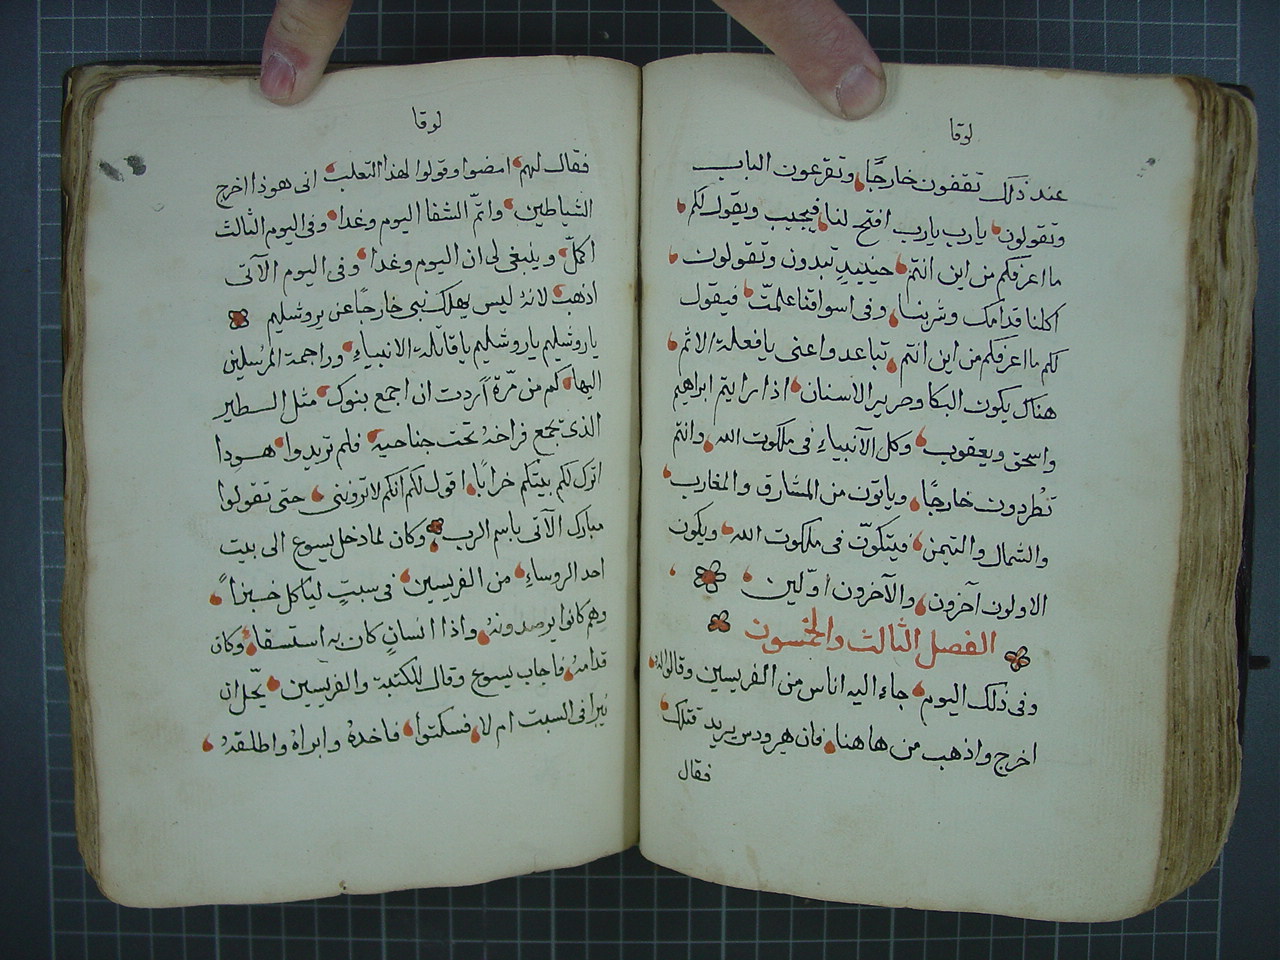 لوقا
عند ذلك تقفون خارجًا وتقرعون الباب
وتقولون يارب يارب افتح لنا فيجيب ويقول لكم
ما اعرفكم من اين انتم حينيدٍ تبدون وتقولون
اكلنا قدامك وشربنا وفى اسواقنا علمتّ فيقول
لكم ما اعرفكم من اين انتم تباعدوا عنى يا فعلة الاثم
هناك يكون البكا وصرير الاسنان اذا رايتم ابراهيم
واسحق ويعقوب وكل الآنبياءِ فى ملكوت الله وانتم
تُطردون خارجًا وياتون من المشارق والمغارب
والشمال والتيمن فيتكوّن فى ملكوت الله ويكون
الاولون آخرون والآخرون اوّلين
الفصل الثالث والخمسون
وفى ذلك اليوم جاء اليه اناس من الفريسين وقالوا له
اخرج واذهب من هاهنا فان هيرودس يريد قتلك
فقال
لوقا
فقال لهم امضوا وقولوا لهذا الثعلب انى هوذا اخرج
الشياطين واتمّ الشفا اليوم وغدا وفى اليوم الثالث
اكملّ وينبغى لى ان اليوم وغدا وفى اليوم الآتى
اذهب لانهُ ليس يهلك نبى خارجًا عن يروشليم
ياروشليم ياروشليم يا قاتلة الانبياءِ وراجمة المرُسلين
اليها كم من مرّة آردت ان اجمع بنوك مثل السطير
الذى تجمع فراخهُ تحت جناحيه فلم تريدوا هــودا
اترك لكم بيتكم خرابًا اقول لكم انكم لا ترونى حتى تقولوا
مبارك الآتى باسم الرب وكان لما دخل يسوع الى بيت
احد الروساءِ من الفريسين فى سبتٍ لياكل خبزاً
وهم كانوا يرصدونهُ واذا انسانٍ كان به استسقا وكان
قدامهُ فاجاب يسوع وقال للكتبة والفريسين يحّل ان
يُبرا فى السبت ام لا فسكتوا فاخدهُ وابراهُ واطلقهُ